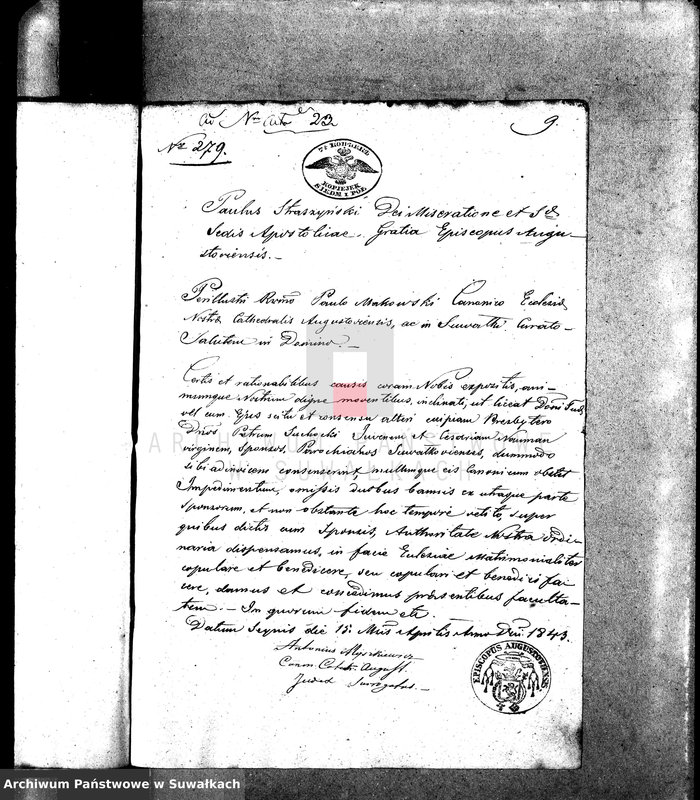 ad Nm Actu 23
9.
No 279.
7½ KOPIEJEK
KOPIEJEK
SIEDM I POŁ
Paulus Straszyński Dei Miseratione et Stae
Sedis Apostolicae Gratia Episcopus Augu-
stoviensis.-
Perillustri Rvndo Paulo Makowski Canonico Ecclesiae
Nostrae Cathedralis Augustoviensis, ac in Suwałki Curato-
Salutem in Domino.-
Certis et rationabilibus causis coram Nobis expositis, ani-
mumque Nostrum digne moventibus, inclinati, ut liceat
vel cum scitu et consensu alteri cuipiam Presbytero
Dnos Petrum Suchocki Juvenem et Cesariam Neuman
virginem, Sponsos, Parochianos Suwałkoviensis, dummodo
sibi adinvicem consenserint, nullumque eis Canonicum obstet
Impedimentum, omissis duobus bannis ex utraque parte
Sponsorum, et non obstante hoc tempore vetito, super
quibus dictis cum Sponsis, Authoritate Nostra Ordi-
naria dispensamus, in facie Ecclesiae Matrimonialiter
copulare et benedicere, seu copulari et benedici fa-
cere, damus et concedimus praesentibus faculta-
tem.- In quorum fidem etc.
Datum Seynis die 15 Mis Aprilis Anno Dni 1843.
Antonius Myszkiewicz
Canon. Cath. August.
Judex Surrogatus.-
EPISCOPUS AUGUSTOVIENSIS
ARCHIWUM PAŃSTWOWE
W SUWAŁKACH
Archiwum Państwowe w Suwałkach